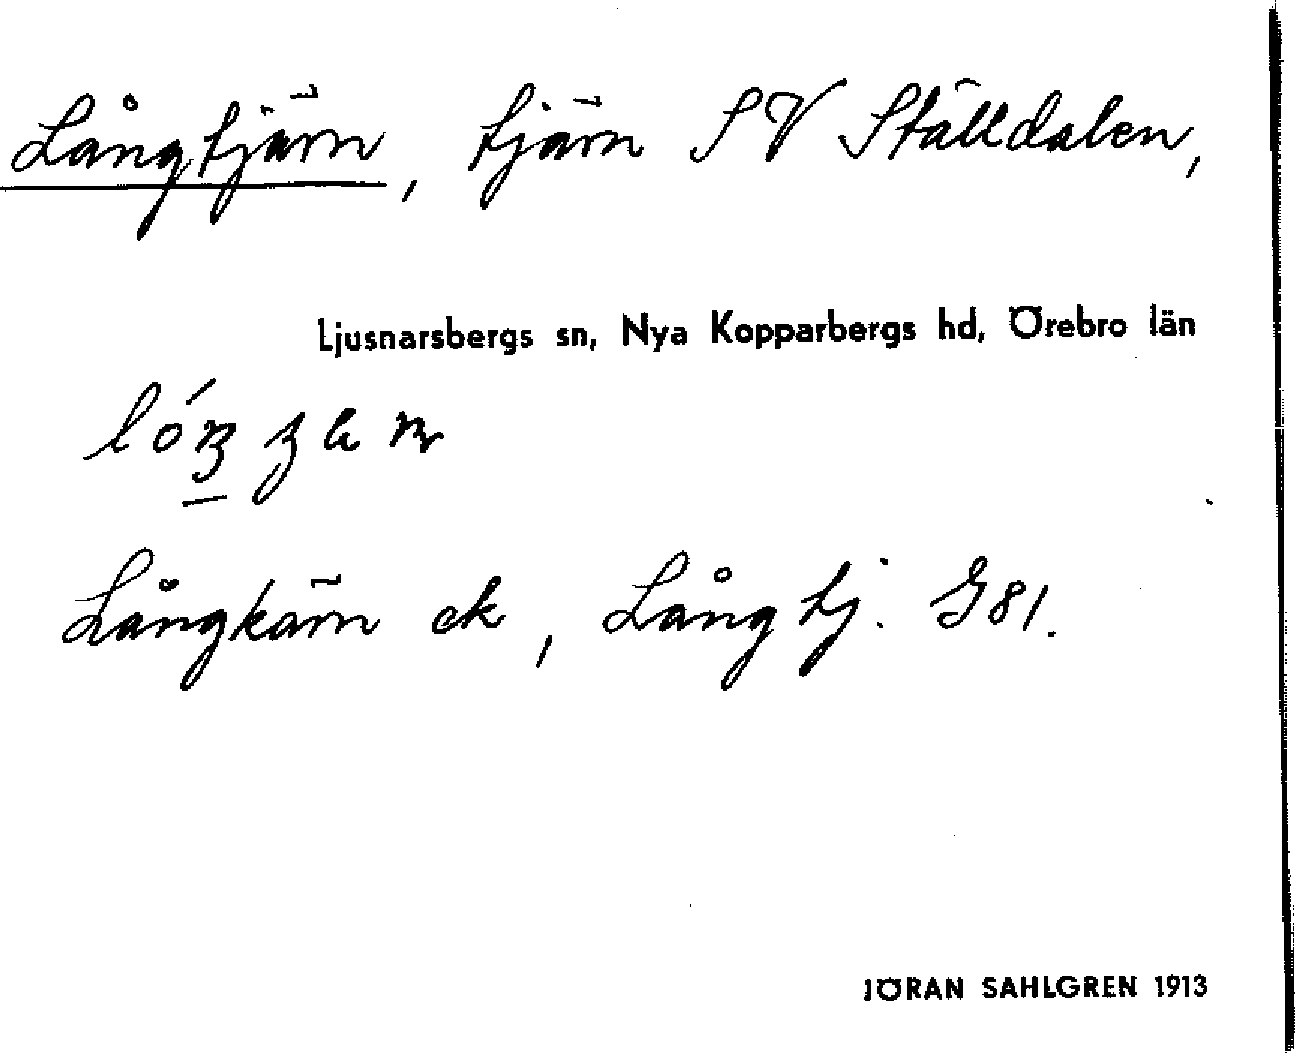 Långtjärn, tjärn SV Ställdalen,
Ljusnarsbergs sn, Nya Kopparbergs hd, Örebro län
Långkärn ek, Långtj. G81.
JÖRAN SAHLGREN 1913